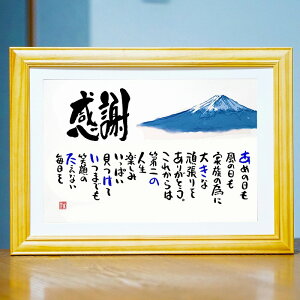 感謝
あめの日も
風の日も
家族の為に
大きな
頑張りを
ありがとう
これからは
第二の
人生
楽しみ
いっぱい
見つけて
いつまでも
笑顔の
たえない
毎日を